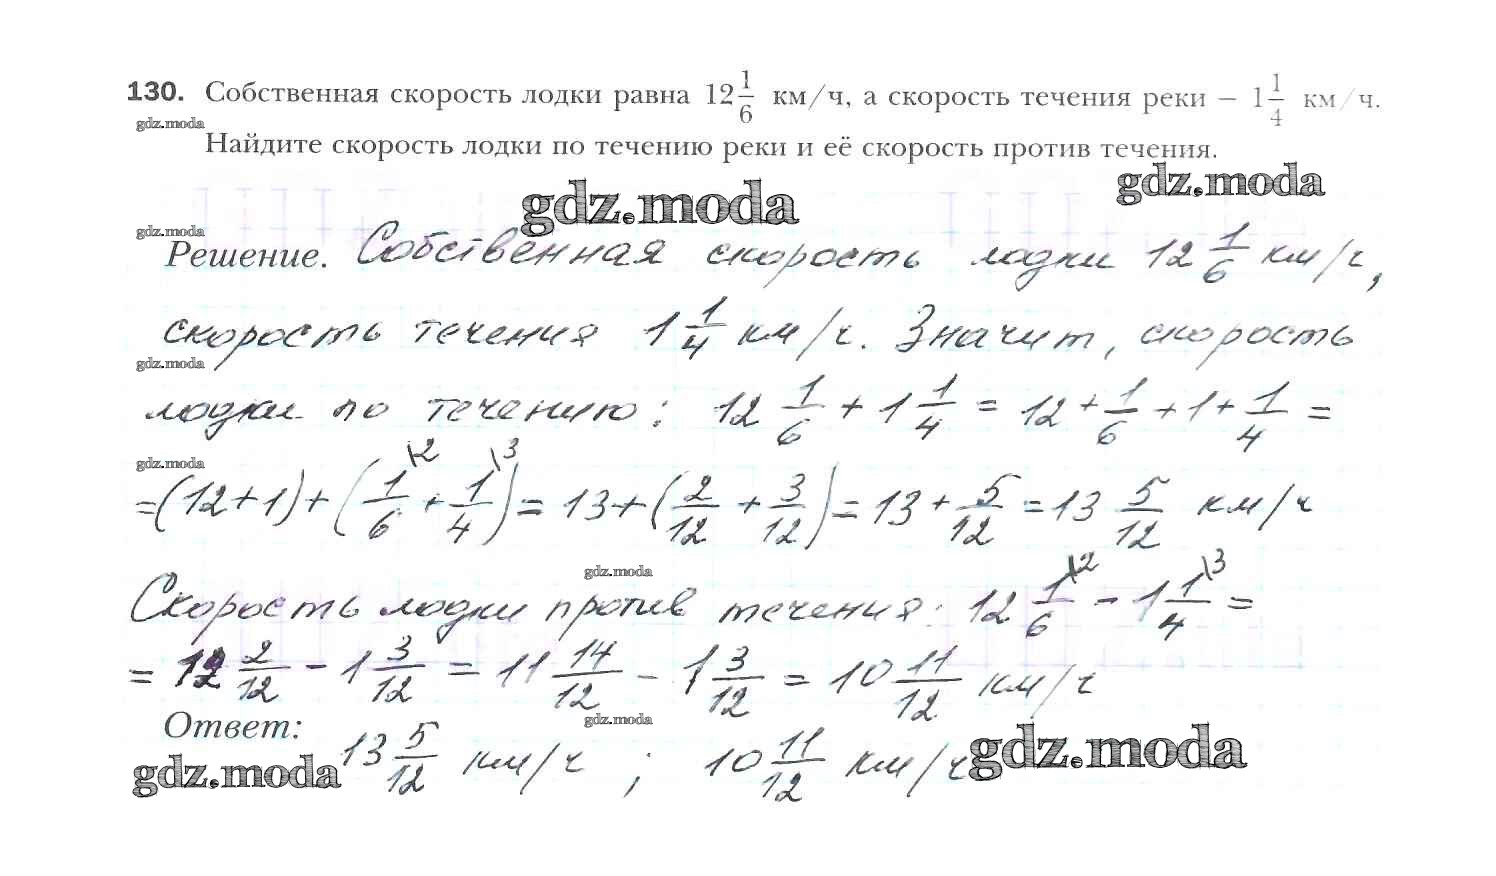 130. Собственная скорость лодки равна 12 1/6 км/ч, а скорость течения реки – 1 1/4 км/ч.
gdz.moda
Найдите скорость лодки по течению реки и её скорость против течения.
gdz.moda
gdz.moda
gdz.moda
Решение. Собственная скорость лодки 12 1/6 км/ч,
скорость течения 1 1/4 км/ч. Значит, скорость
gdz.moda
лодки по течению: 12 1/6 + 1 1/4 = 12 + 1/6 + 1 + 1/4 =
gdz.moda
=(12+1)+(1/6\2 + 1/4\3)= 13+(2/12 + 3/12)= 13 + 5/12 = 13 5/12 км/ч
gdz.moda
Скорость лодки против течения: 12 1/6\2 – 1 1/4\3 =
= 12 2/12 – 1 3/12 = 11 14/12 – 1 3/12 = 10 11/12 км/ч
gdz.moda
Ответ: 13 5/12 км/ч ; 10 11/12 км/ч
gdz.moda
gdz.moda